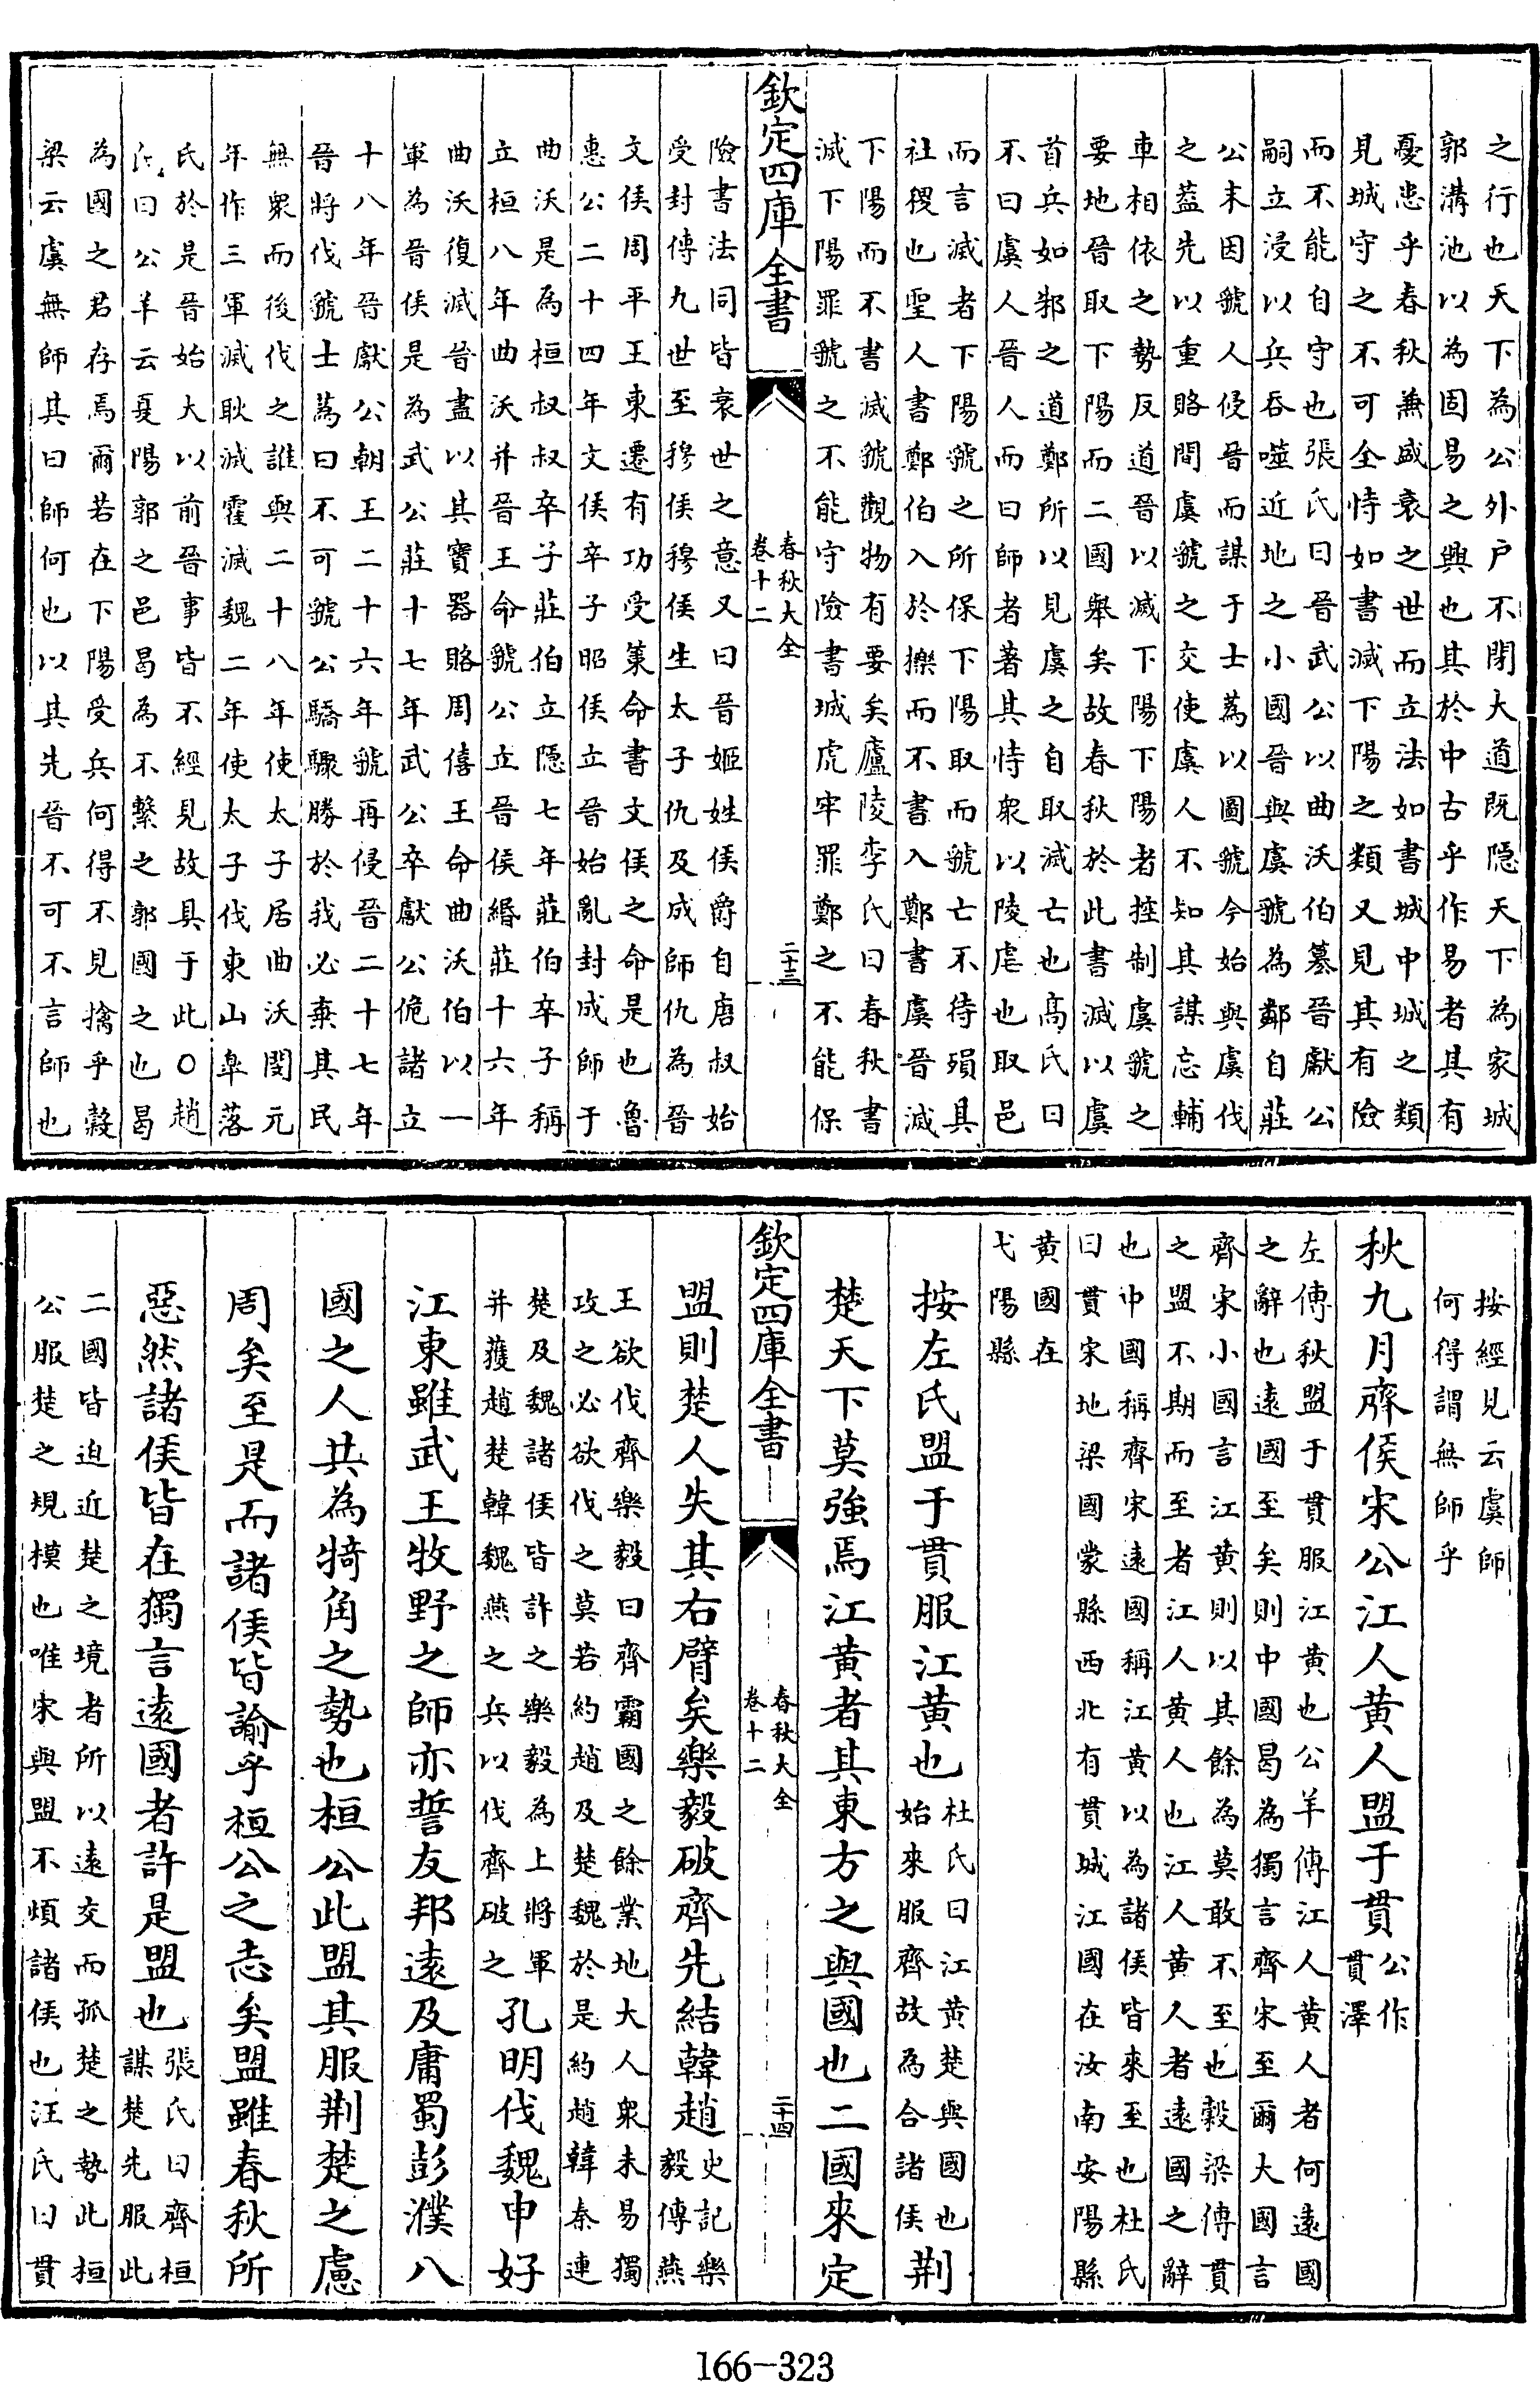 之行也天下為公外户不閉大道既隱天下為家城
郭溝池以為固易之興也其於中古乎作易者其有
憂患乎春秋兼盛衰之世而立法如書城中城之類
見城守之不可全恃如書滅下陽之類又見其有險
而不能自守也張氏曰晉武公以曲沃伯簒晉獻公
嗣立浸以兵吞噬近地之小國晉與虞虢為鄰自莊
公末因虢人侵晉而謀于士蒍以圖虢今始與虞伐
之葢先以重賂間虞虢之交使虞人不知其謀忘輔
車相依之勢反道晉以滅下陽下陽者控制虞虢之
要地晉取下陽而二國舉矣故春秋於此書滅以虞
首兵如邾之道鄭所以見虞之自取滅亡也髙氏曰
不曰虞人晉人而曰師者著其恃衆以陵虐也取邑
而言滅者下陽虢之所保下陽取而虢亡不待殞其
社稷也聖人書鄭伯入於櫟而不書入鄭書虞晉滅
下陽而不書滅虢觀物有要矣廬陵李氏曰春秋書
滅下陽罪虢之不能守險書城虎牢罪鄭之不能保
欽定四庫全書
春秋大全
卷十二
二十三
險書法同皆衰世之意又曰晉姬姓侯爵自唐叔始
受封傳九世至穆侯穆侯生太子仇及成師仇為晉
文侯周平王東遷有功受䇿命書文侯之命是也魯
惠公二十四年文侯卒子昭侯立晉始亂封成師于
曲沃是為桓叔叔卒子莊伯立隱七年莊伯卒子稱
立桓八年曲沃并晉王命虢公立晉侯緡莊十六年
曲沃復滅晉盡以其寶器賂周僖王命曲沃伯以一
軍為晉侯是為武公莊十七年武公卒獻公佹諸立
十八年晉獻公朝王二十六年虢再侵晉二十七年
晉將伐虢士蒍曰不可虢公驕驟勝於我必棄其民
無衆而後伐之誰與二十八年使太子居曲沃閔元
年作三軍滅耿滅霍滅魏二年使太子伐東山臯落
氏於是晉始大以前晉事皆不經見故具于此〇趙
氏曰公羊云夏陽郭之邑曷為不繫之郭國之也曷
為國之君存焉爾若在下陽受兵何得不見擒乎榖
梁云虞無師其曰師何也以其先晉不可不言師也
按經見云虞師
何得謂無師乎
秋九月齊侯宋公江人黄人盟于貫公作貫澤
左傳秋盟于貫服江黄也公羊傳江人黄人者何遠國
之辭也遠國至矣則中國曷為獨言齊宋至爾大國言
齊宋小國言江黄則以其餘為莫敢不至也榖梁傳貫
之盟不期而至者江人黄人也江人黄人者遠國之辭
也中國稱齊宋遠國稱江黄以為諸侯皆來至也杜氏
曰貫宋地梁國蒙縣西北有貫城江國在汝南安陽縣
黄國在
弋陽縣
按左氏盟于貫服江黄也杜氏曰江黄楚與國也始來服齊故為合諸侯荆
楚天下莫強焉江黄者其東方之與國也二國來定
欽定四庫全書
春秋大全
卷十二
二十四
盟則楚人失其右臂矣樂毅破齊先結韓趙史記樂毅傳燕
王欲伐齊樂毅曰齊霸國之餘業地大人衆未易獨
攻之必欲伐之莫若約趙及楚魏於是約趙韓秦連
楚及魏諸侯皆許之樂毅為上將軍并䕶趙楚韓魏燕之兵以伐齊破之孔明伐魏申好
江東雖武王牧野之師亦誓友邦遠及庸蜀彭濮八
國之人共為犄角之勢也桓公此盟其服荆楚之慮
周矣至是而諸侯皆諭乎桓公之志矣盟雖春秋所
惡然諸侯皆在獨言遠國者許是盟也張氏曰齊桓謀楚先服此
二國皆迫近楚之境者所以遠交而孤楚之勢此桓
公服楚之規模也唯宋與盟不煩諸侯也汪氏曰貫
166-323